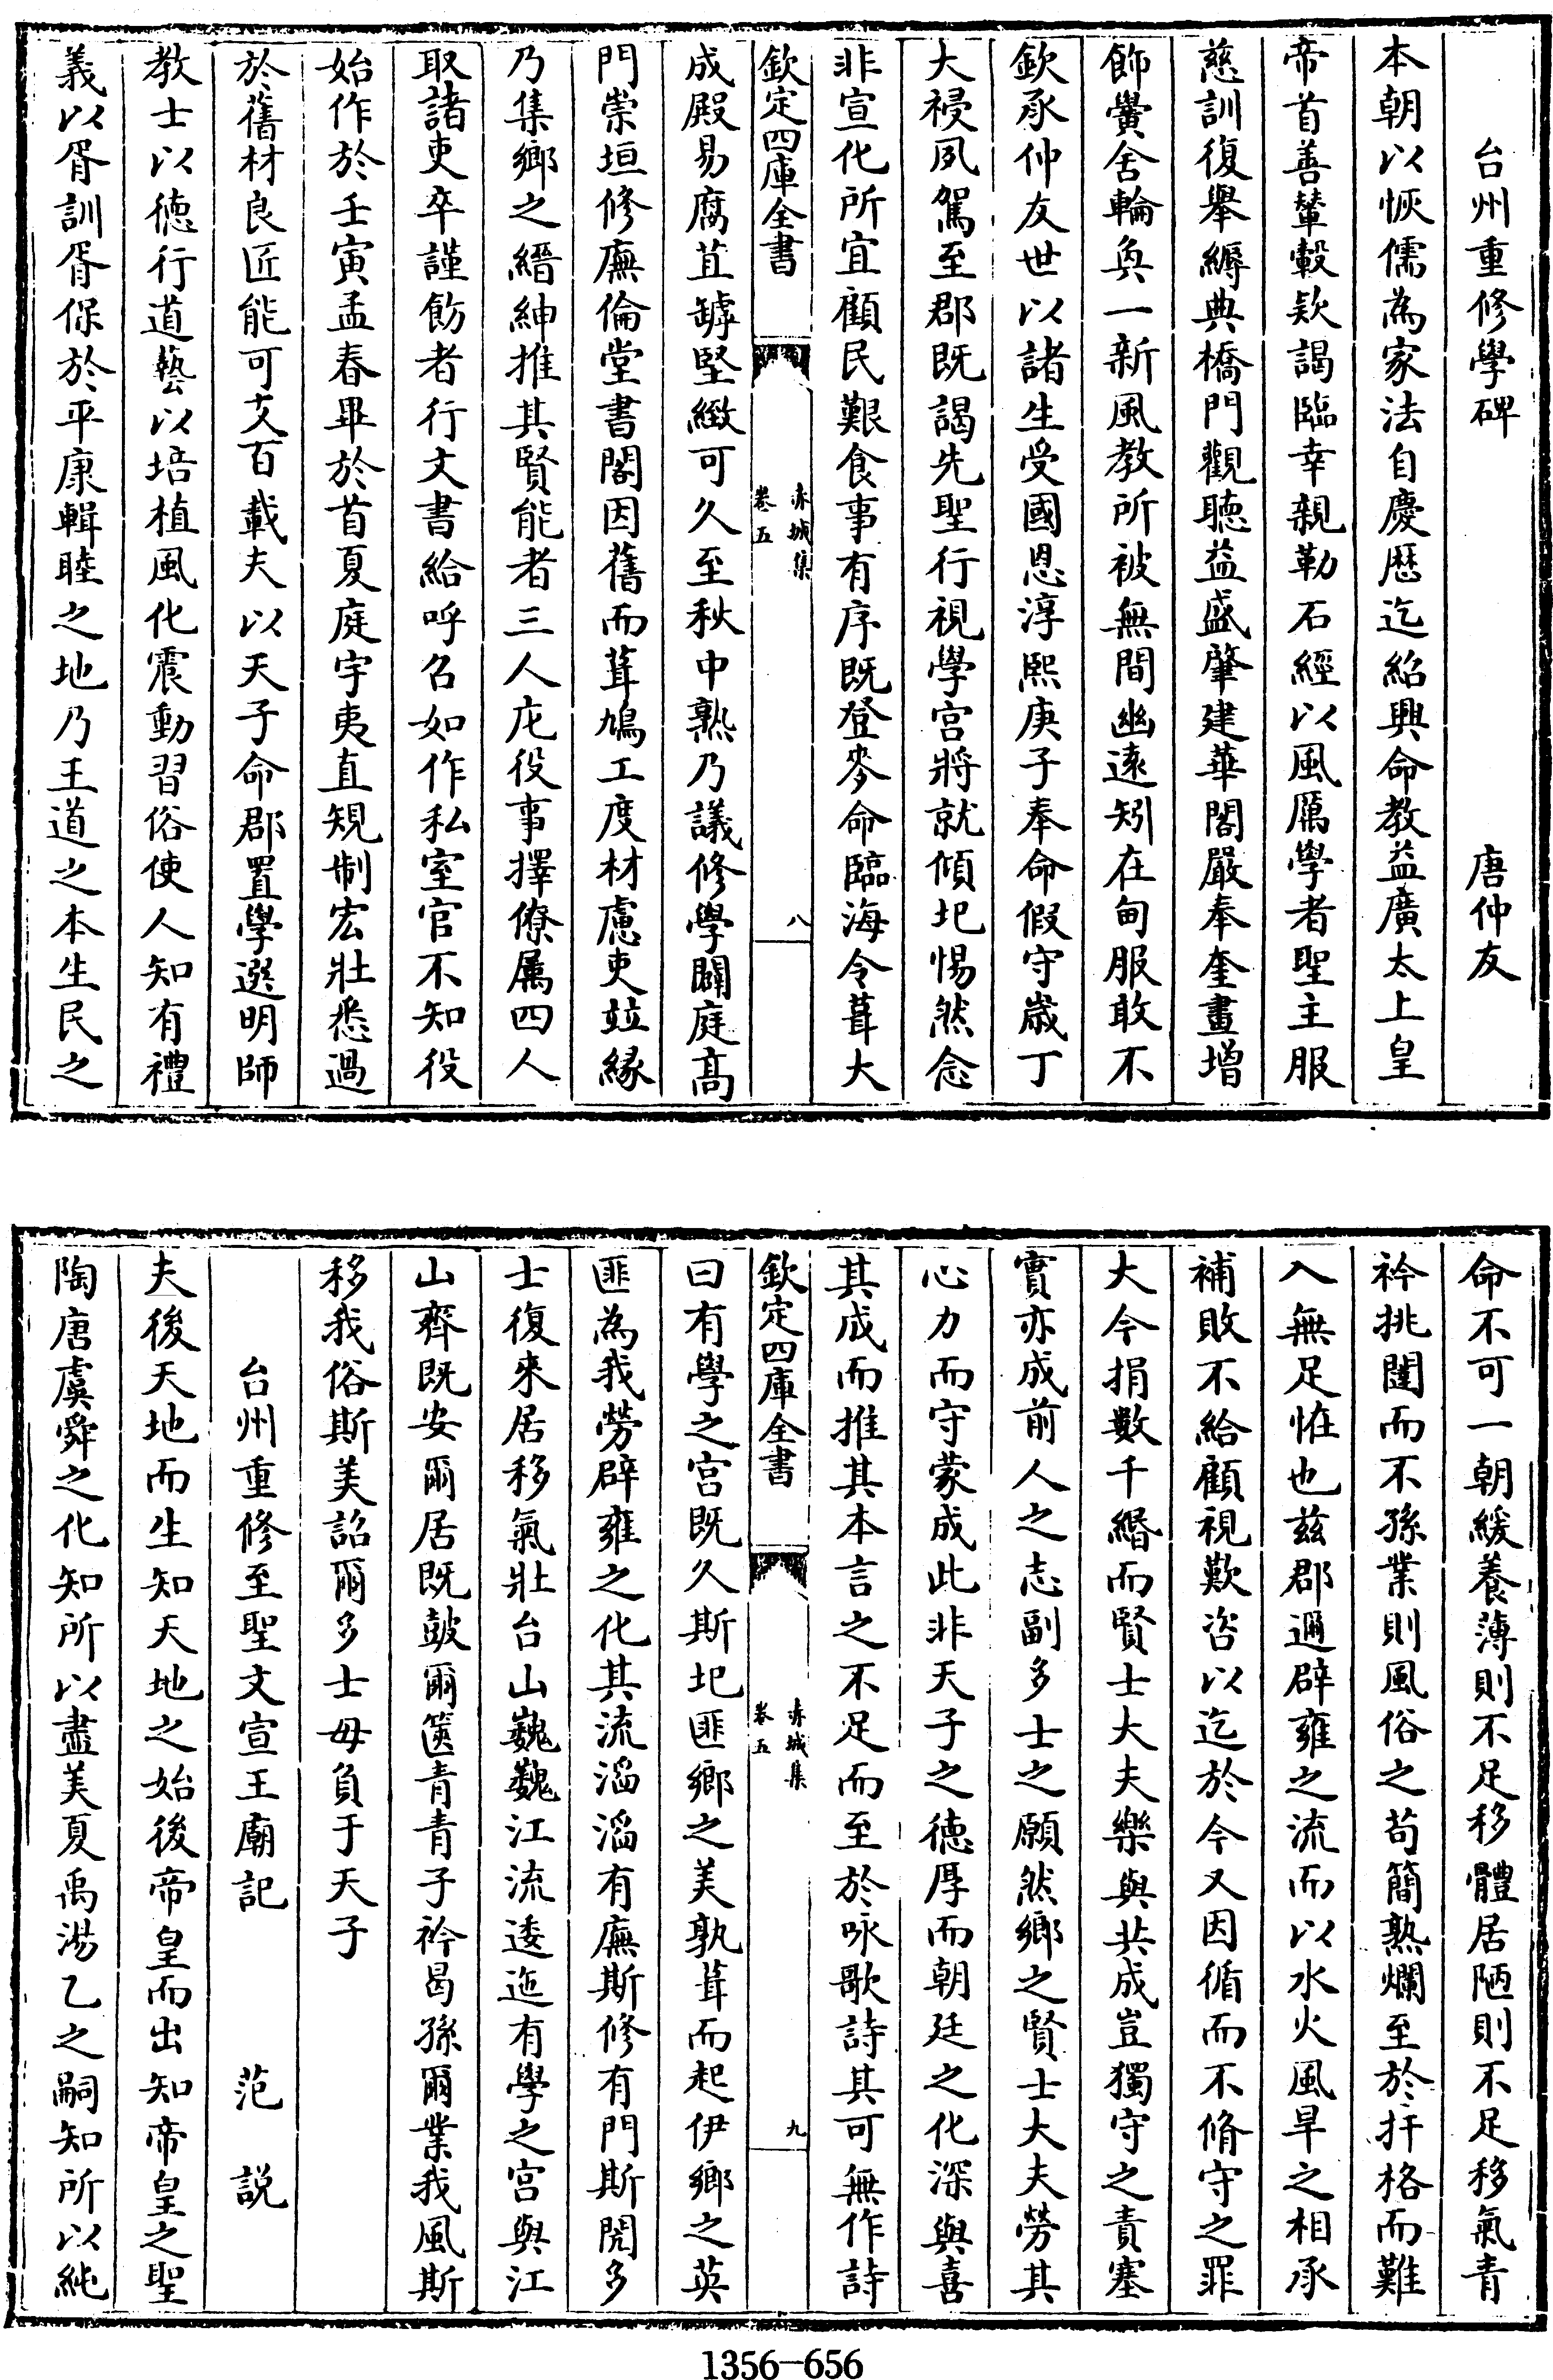 台州重修學碑　唐仲友
本朝以恢儒為家法自慶厯迄紹興命教益廣太上皇
帝首善輦轂欵謁臨幸親勒石經以風厲學者聖主服
慈訓復舉縟典橋門觀聽益盛肇建華閣嚴奉奎畫增
飾黌舍輪奐一新風教所被無間幽遠矧在甸服敢不
欽承仲友世以諸生受國恩淳熙庚子奉命假守歲丁
大祲夙駕至郡既謁先聖行視學宫將就傾圮惕然念
非宣化所宜顧民艱食事有序既登麥命臨海令葺大
欽定四庫全書
赤城集
卷五
八
成殿易腐苴罅堅緻可久至秋中熟乃議修學闢庭髙
門崇垣修廡倫堂書閣因舊而葺鳩工度材慮吏竝緣
乃集鄉之縉紳推其賢能者三人庀役事擇僚屬四人
取諸吏卒謹飭者行文書給呼召如作私室官不知役
始作於壬寅孟春畢於首夏庭宇夷直規制宏壯悉過
於舊材良匠能可支百載夫以天子命郡置學選明師
教士以德行道藝以培植風化震動習俗使人知有禮
義以胥訓胥保於平康輯睦之地乃王道之本生民之
命不可一朝緩養薄則不足移體居陋則不足移氣青
衿挑闥而不孫業則風俗之茍簡熟爛至於扞格而難
入無足怪也兹郡邇辟雍之流而以水火風旱之相承
補敗不給顧視歎咨以迄於今又因循而不脩守之罪
大今捐數千緡而賢士大夫樂與共成豈獨守之責塞
實亦成前人之志副多士之願然鄉之賢士大夫勞其
心力而守蒙成此非天子之德厚而朝廷之化深與喜
其成而推其本言之不足而至於咏歌詩其可無作詩
欽定四庫全書
赤城集
卷五
九
曰有學之宫既久斯圮匪鄉之美孰葺而起伊鄉之英
匪為我勞辟雍之化其流滔滔有廡斯修有門斯閌多
士復來居移氣壯台山巍巍江流逶迤有學之宫與江
山齊既安爾居既鼓爾篋青青子衿曷孫爾業我風斯
移我俗斯美詔爾多士毋負于天子
台州重修至聖文宣王廟記　范説
夫後天地而生知天地之始後帝皇而出知帝皇之聖
陶唐虞舜之化知所以盡美夏禹湯乙之嗣知所以純
1356-656